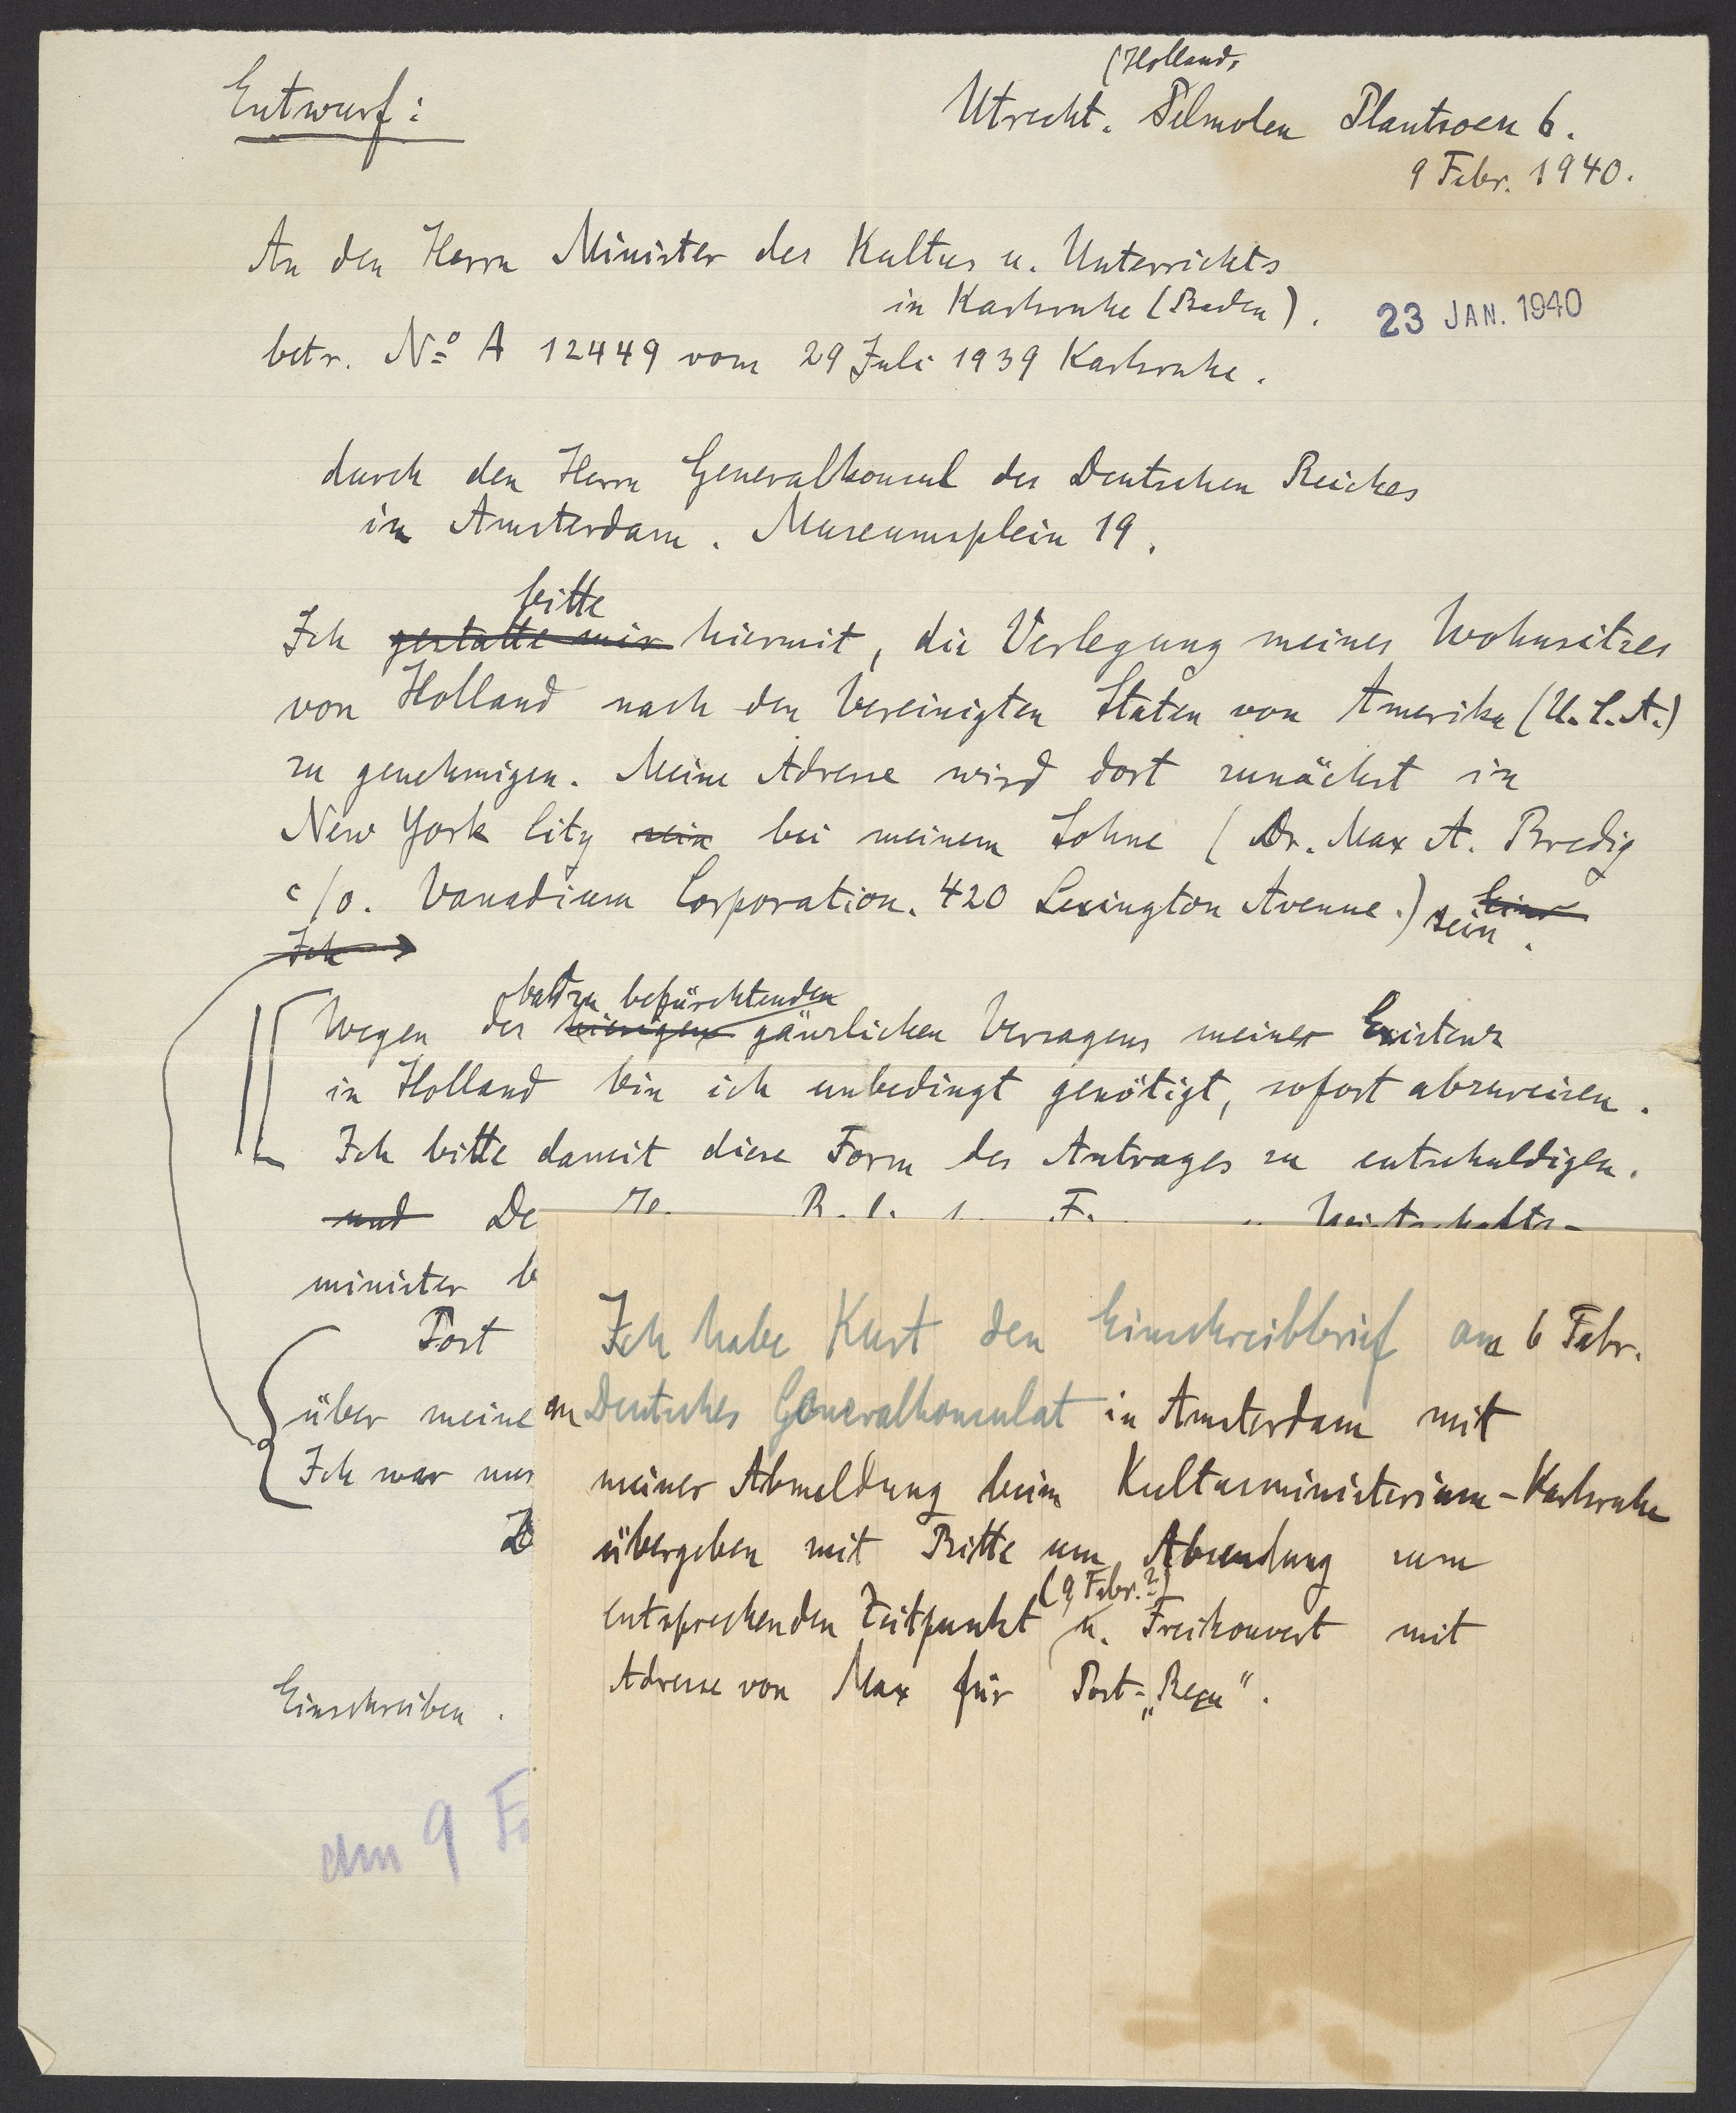 Entwurf:
(Holland,
Utrecht. Pelmolen Plantsoen 6.
9 Febr. 1940.
An den Herrn Minister des Kultus u. Unterrichts
in Karlsruhe (Baden).
23 JAN. 1940
betr. No A 12449 vom 29 Juli 1939 Karlsruhe.
durch den Herrn Generalkonsul des Deutschen Reiches
in Amsterdam. Museumsplein 19.
bitte
Ich gestatte mir hiermit, die Verlegung meines Wohnsitzes
von Holland nach den Vereinigten Staten von Amerika (U.S.A.)
zu genehmigen. Meine Adresse wird dort zunächst in
New York City sein bei meinem Sohne (Dr. Max A. Bredig
c/o. Vanadium Corporation. 420 Lexington Avenue.) sein.
Ich
bald zu befürchtenden
Wegen des hiesigen gänzlichen Versagens meiner Existenz
in Holland bin ich unbedingt genötigt, sofort abzureisen.
Ich bitte damit diese Form des Antrages zu entschuldigen.
und De Wirtschafts-
minister b
Post
über meine
Ich war nur
Einschreiben.
am 9 F
Ich habe Kurt den Einschreibbrief am 6 Febr.
an Deutsches Generalkonsulat in Amsterdam mit
meiner Abmeldung beim Kultusministerium-Karlsruhe
übergeben mit Bitte um Absendung zum
(9 Febr.?)
entsprechenden Zeitpunkt u. Freikouvert mit
Adresse von Max für Post-„Reçu".